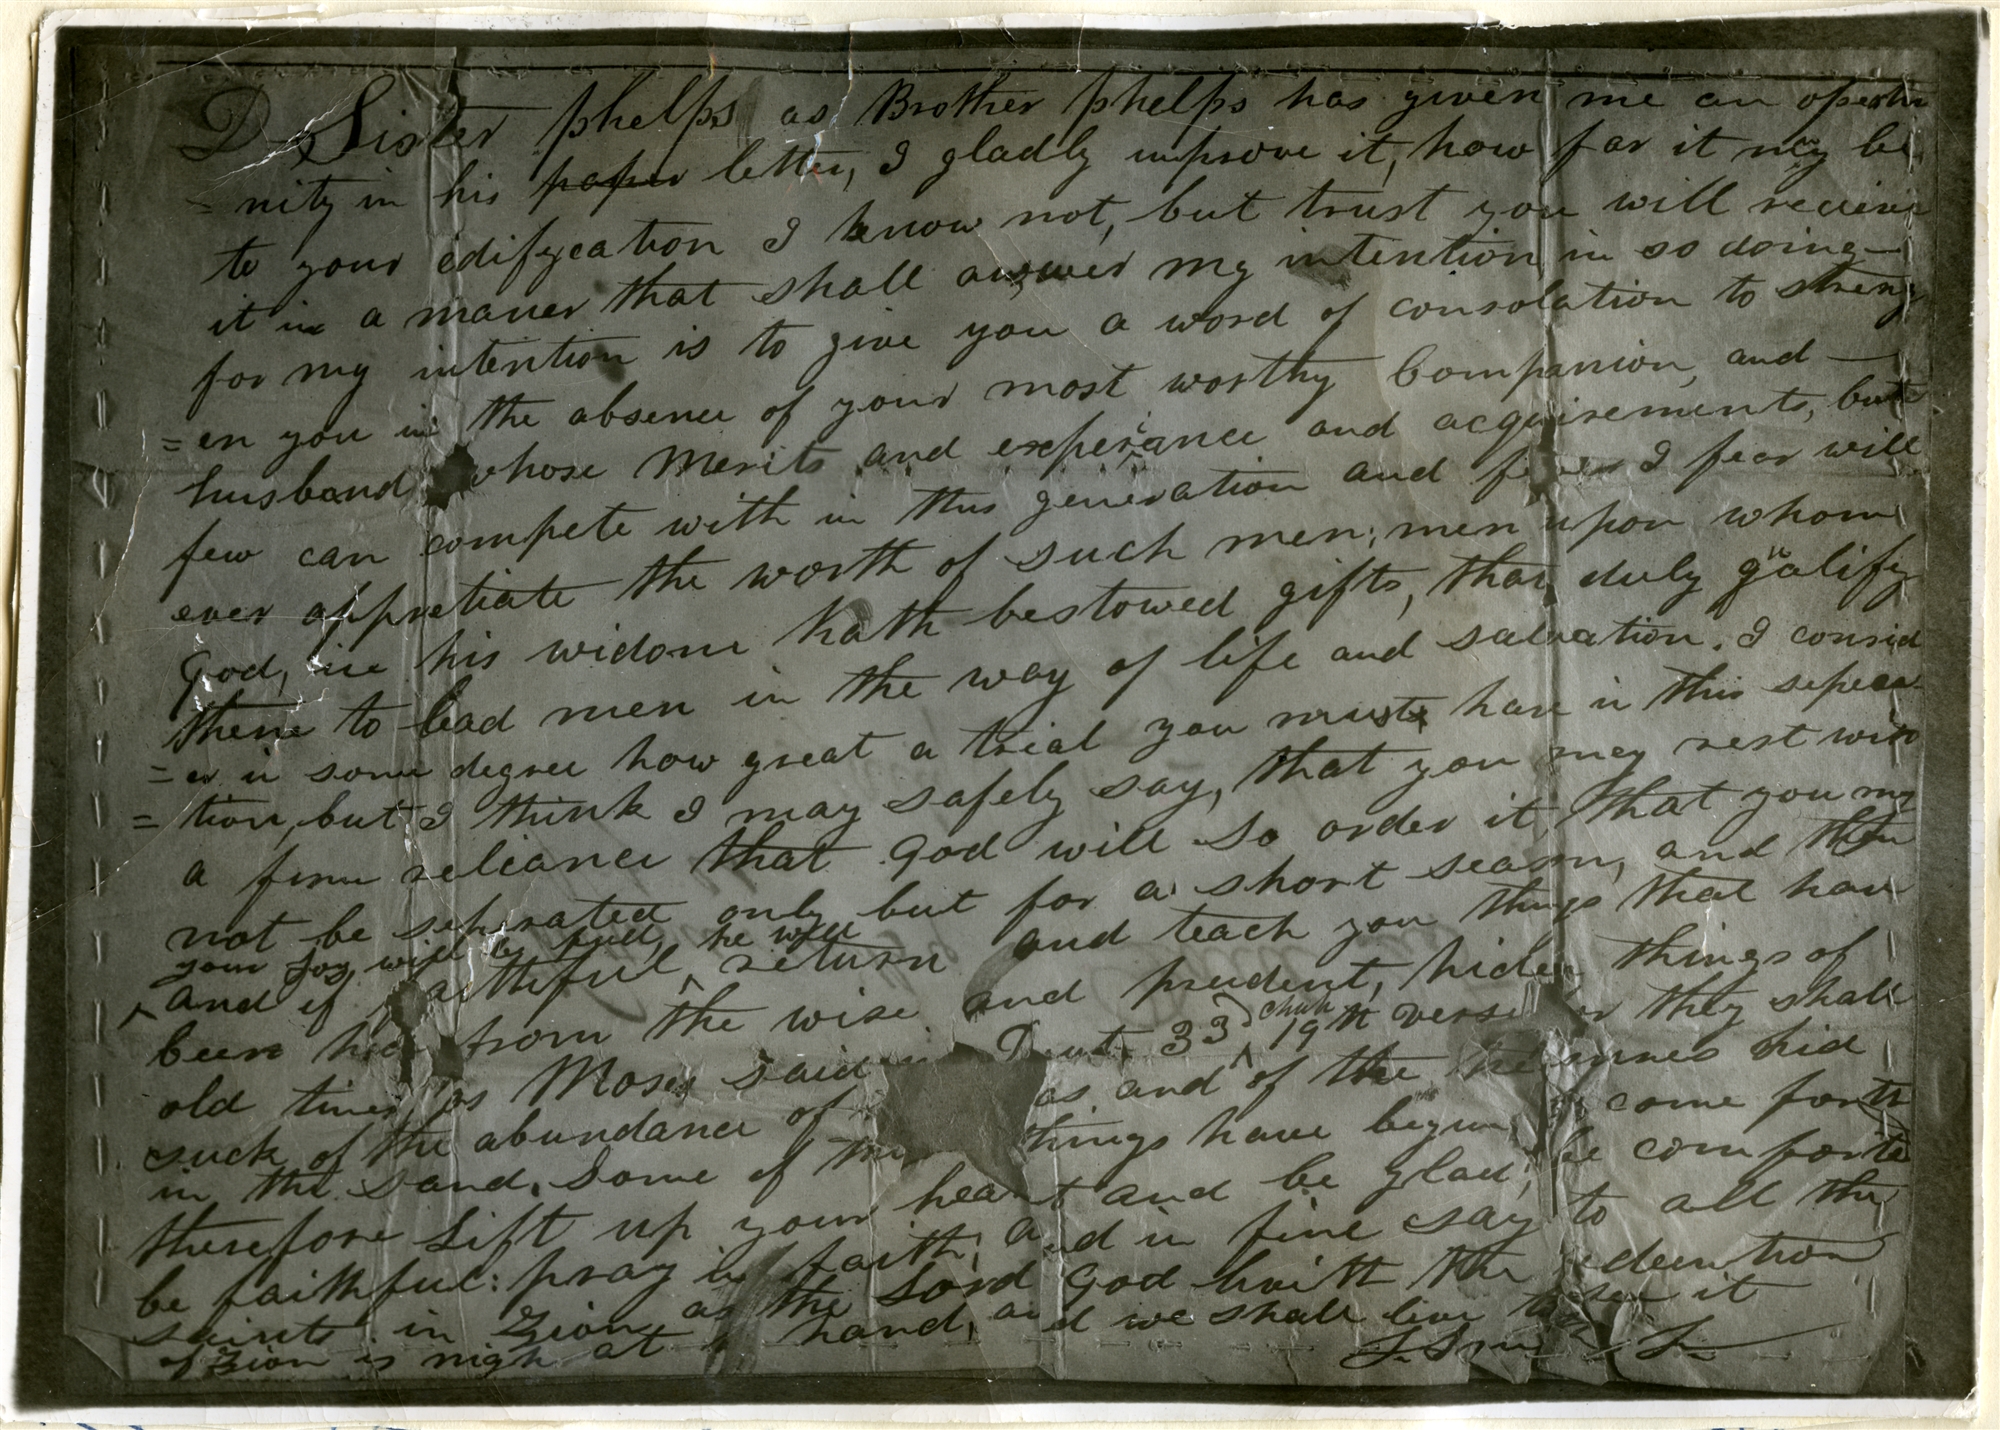 D— Sister phelps as Brother phelps has given me an opertu
=nity in his paper letter, I gladly improve it, how far it may be
to your edifycation I know not, but trust you will recieve
it in a maner that shall answer my intention in so doing—
for my intention is to give you a word of consolation to streng
=en you in the absence of your most worthy Companion, and —
husband whose Merits and experiance and acquirements, but
few can compete with in this generation and few I fear will
ever appretiate the worth of such men; men upon whom
God, in his widom hath bestowed gifts, that duly qualify
them to lead men in the way of life and salvation. I consid
=er in some degree how great a trial you must have in this sepera
=tion, but I think I may safely say, that you may rest with
a firm reliance that God will so order it, that you my
not be seperated only but for a short season, and then
your Joy will be full, he will
and if faithful, return and teach you things that have
been hid from the wise and prudent, hiden things of
old times, as Moses said in Deut. 33 chap 19th verse for they shall
suck of the abundance of as and of the treasures hid
in the sand. Some of these things have begun to come forth
therefore Lift up your heart and be glad; be comforted
be faithful: pray in faith; and in fine say to all the
saints in Zion as the Lord God liveth the redemtion
of Zion is nigh at hand, and we shall live to see it
J. Smith Jr